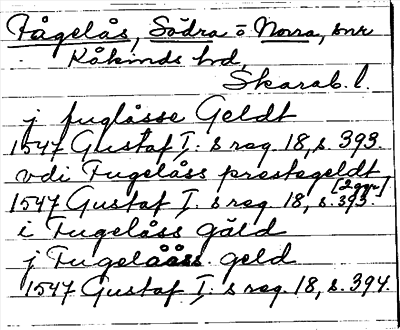 Fågelås, Södra o Norra, snr
Kåkinds hd,
Skarab. l.
j fuglåsse Geldt
1547 Gustaf I:s reg. 18, s. 393.
vdi Fugelåss prestegeldt,
1547 Gustaf I:s reg. 18, s. 393. [2 ggr]
i Fugelåss gäld
j Fugelååss geld
1547 Gustaf I:s reg. 18, s. 394.